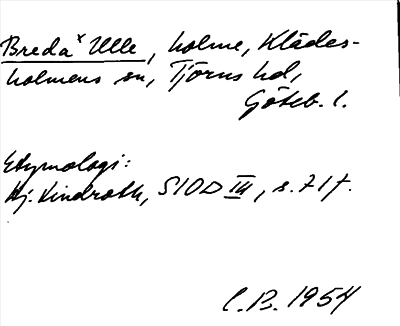 Breda x Ulle, holme, Klädes-
holmens sn, Tjörns hd,
Göteb. l.
Etymologi:
Hj. Lindroth, SIOD III, s. 71 f.
C.B. 1954